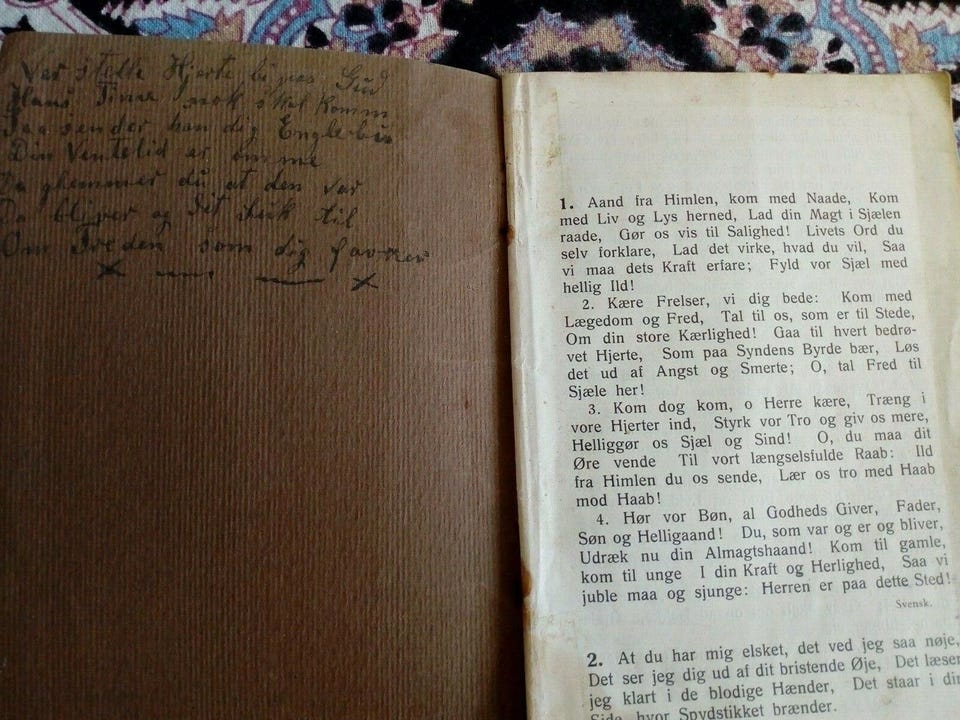 Vær stille Hjerte bi paa Gud
Hans Time nok skal komm
Saa sender han dig Englebu
Din Ventetid er omme
Da glemmer du at den var
Da bliver og dit Suk til
Om Freden som dig favner
1. Aand fra Himlen, kom med Naade, Kom
med Liv og Lys herned, Lad din Magt i Sjælen
raade, Gør os vis til Salighed! Livets Ord du
selv forklare, Lad det virke, hvad du vil, Saa
vi maa dets Kraft erfare; Fyld vor Sjæl med
hellig Ild!
2. Kære Frelser, vi dig bede: Kom med
Lægedom og Fred, Tal til os, som er til Stede,
Om din store Kærlighed! Gaa til hvert bedrø-
vet Hjerte, Som paa Syndens Byrde bær, Løs
det ud af Angst og Smerte; O, tal Fred til
Sjæle her!
3. Kom dog kom, o Herre kære, Træng i
vore Hjerter ind, Styrk vor Tro og giv os mere,
Helliggør os Sjæl og Sind! O, du maa dit
Øre vende Til vort længselsfulde Raab: Ild
fra Himlen du os sende, Lær os tro med Haab
mod Haab!
4. Hør vor Bøn, al Godheds Giver, Fader,
Søn og Helligaand! Du, som var og er og bliver,
Udræk nu din Almagtshaand! Kom til gamle,
kom til unge I din Kraft og Herlighed, Saa vi
juble maa og sjunge: Herren er paa dette Sted!
Svensk.
2. At du har mig elsket, det ved jeg saa nøje,
Det ser jeg dig ud af dit bristende Øje, Det læser
jeg klart i de blodige Hænder, Det staar i din
Side, hvor Spydstikket brænder.